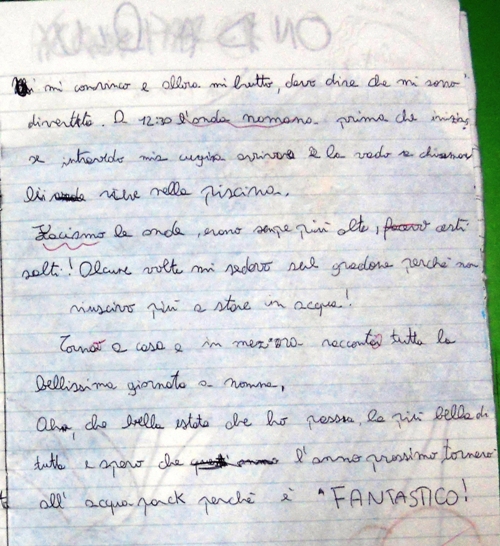 mi convinco e allora mi butto, devo dire che mi sono
divertita. A 12:30 l'onda romana prima che iniziasse
se intravedo mia cugina arrivare e la vado a chiamare
lei viene nella piscina.
Facismo le onde, erano sempre più alte, certi
salti! Alcune volte mi sedevo sul gradone perchè non
riuscivo più a stare in acqua!
Tornai a casa e in mezz'ora raccontai tutta la
bellissima giornata a nonna,
Aha, che bella estate che ho passa, la più bella di
tutte e spero che l'anno prossimo tornerò
all' acqua park perchè è FANTASTICO!